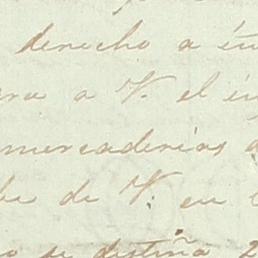 derecho a
a V. el
mercaderias
de V. en
se destina 2